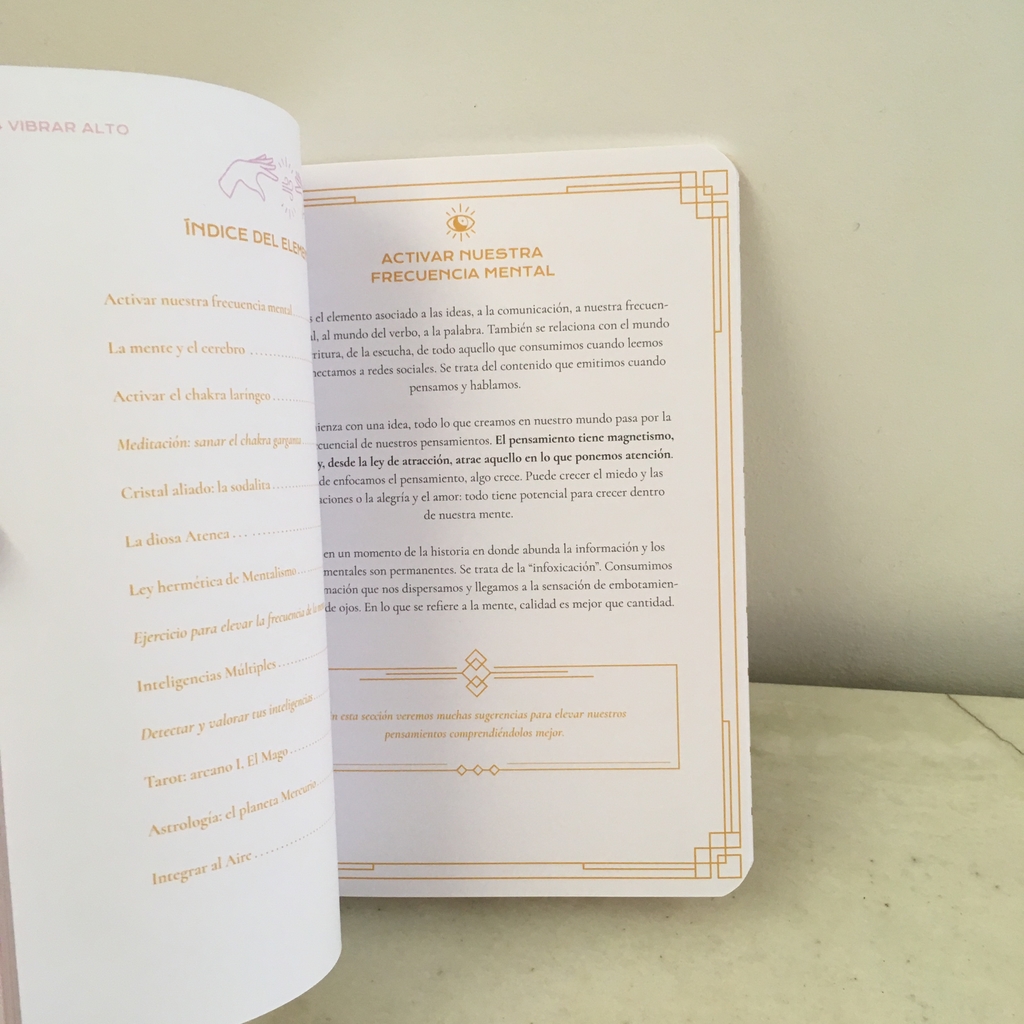 VIBRAR ALTO
ÍNDICE DEL
Activar nuestra frecuencia mental
La mente y el cerebro
Activar el chakra laríngeo
Meditación: sanar el chakra garganta
Cristal aliado: la sodalita
La diosa Atenea
Ley hermética de Mentalismo
Ejercicio para elevar la frecuencia de la
Inteligencias Múltiples
Detectar y valorar tus inteligencias
Tarot: arcano I. El Mago
Astrología: el planeta Mercurio
Integrar al Aire
ACTIVAR NUESTRA
FRECUENCIA MENTAL
el elemento asociado a las ideas, a la comunicación, a nuestra frecuen-
al mundo del verbo, a la palabra. También se relaciona con el mundo
de la escucha, de todo aquello que consumimos cuando leemos
a redes sociales. Se trata del contenido que emitimos cuando
pensamos y hablamos.
con una idea, todo lo que creamos en nuestro mundo pasa por la
de nuestros pensamientos. El pensamiento tiene magnetismo,
y, desde la ley de atracción, atrae aquello en lo que ponemos atención.
enfocamos el pensamiento, algo crece. Puede crecer el miedo y las
o la alegría y el amor: todo tiene potencial para crecer dentro
de nuestra mente.
en un momento de la historia en donde abunda la información y los
mentales son permanentes. Se trata de la “infoxicación”. Consumimos
que nos dispersamos y llegamos a la sensación de embotamien-
de ojos. En lo que se refiere a la mente, calidad es mejor que cantidad.
esta sección veremos muchas sugerencias para elevar nuestros
pensamientos comprendiéndolos mejor.